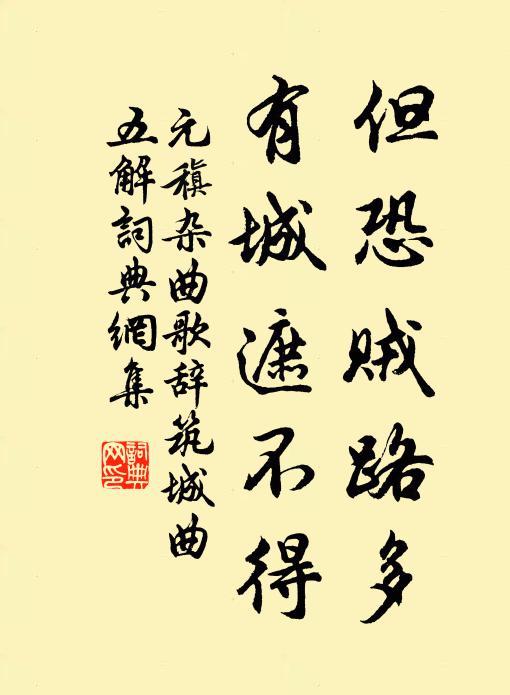 但恐贼路多
有城遮不得
元稹杂曲歌辞筑城曲
五解詞典網集
詞典
网印